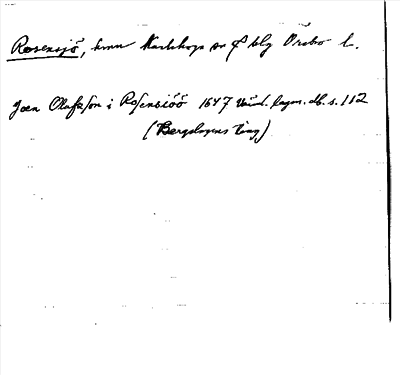 Rosensjö, hmn Karlskoga sn o blg Örebro l.
Joen Olufsson i Rosensiöö 1647 Värml. lagm. db. s. 112
(Bergslagens ting)